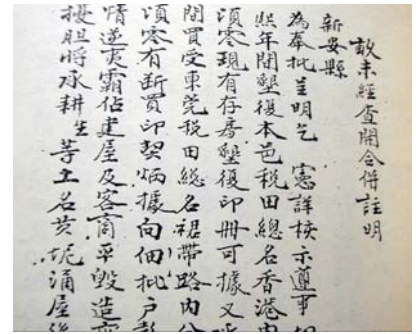 敢未經查開合併註明
新安縣
為奉批呈明乞 憲詳核示遵事
熙年間墾復本邑稅田總名香港
頃零現有存房墾復印冊可據又
間買受東莞稅田總名裙帶路內
頃零有斷買印契炳據向佃批户彭
情逆夷霸佔建屋及客商平毀造
擾胆將承耕生等土名黄坭涌屋後